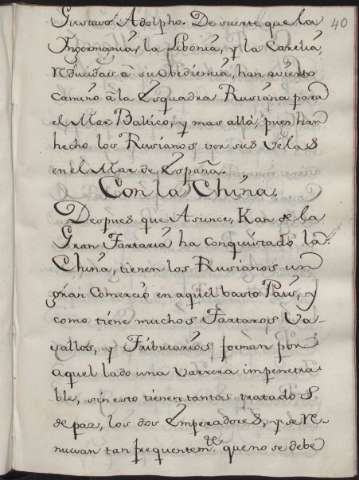 40
Gustavo Adolpho. De suerte que la
Ingormania, la Libonia, y la Carelia,
reducidas â su obediencia, han avierto
camino â la Esquadra Rusiana para
el Mar Baltico, y mas allà, pues han
hecho los Rusianos ver sus Velas
en el Mar de España.
Con la China.
Despues que Asunci, Kan de la
Gran Tartaria ha conquistado la
China, tienen los Rusianos un
gran Comercio en aquel basto Pais, y
como tiene muchos Tartaros Va-
sallos, y Tributarios forman por
aquel lado una varrera impenetra-
ble, sin esto tienen tantos tratados
de paz, los dos Emperadores, y se re-
nuevan tan frequentem.te que no se debe